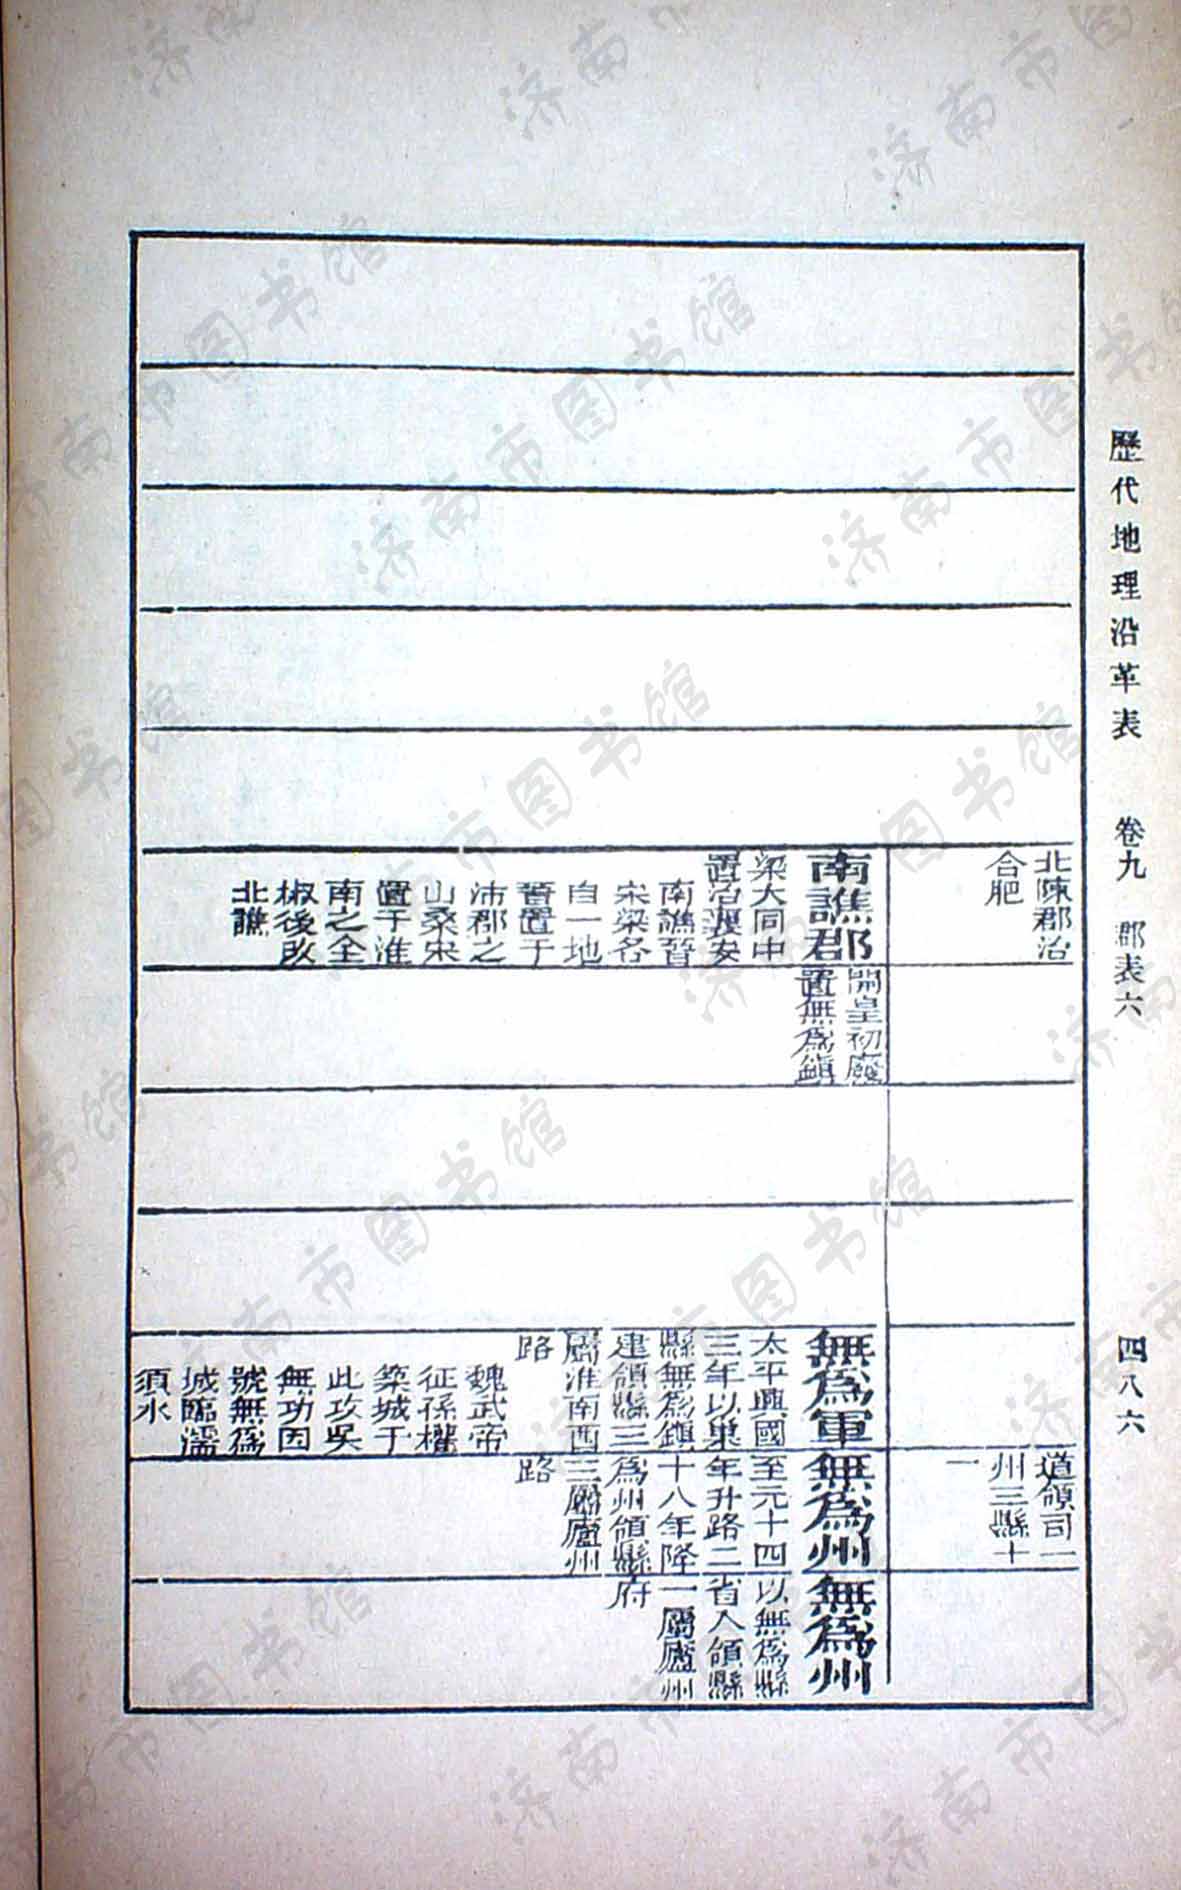 歷代地理沿革表 卷九 郡表六 四八六
北陳郡治
合肥
道領司一
州三縣十
一
南譙郡
梁大同中
置治襄安
南譙晉
宋梁各
自一地
晉置于
沛郡之
山桑宋
置于淮
南之全
椒後改
北譙
開皇初廢
置無爲鎮
無爲軍
太平興國
三年以巢
縣無爲鎮
建領縣三
屬淮南西
路
魏武帝
征孫權
築城于
此攻吳
無功因
號無爲
城臨濡
須水
無爲州
至元十四
年升路二
十八年降
爲州領縣
三屬廬州
路
無爲州
以無爲縣
省入領縣
一屬廬州
府
济南市图书馆